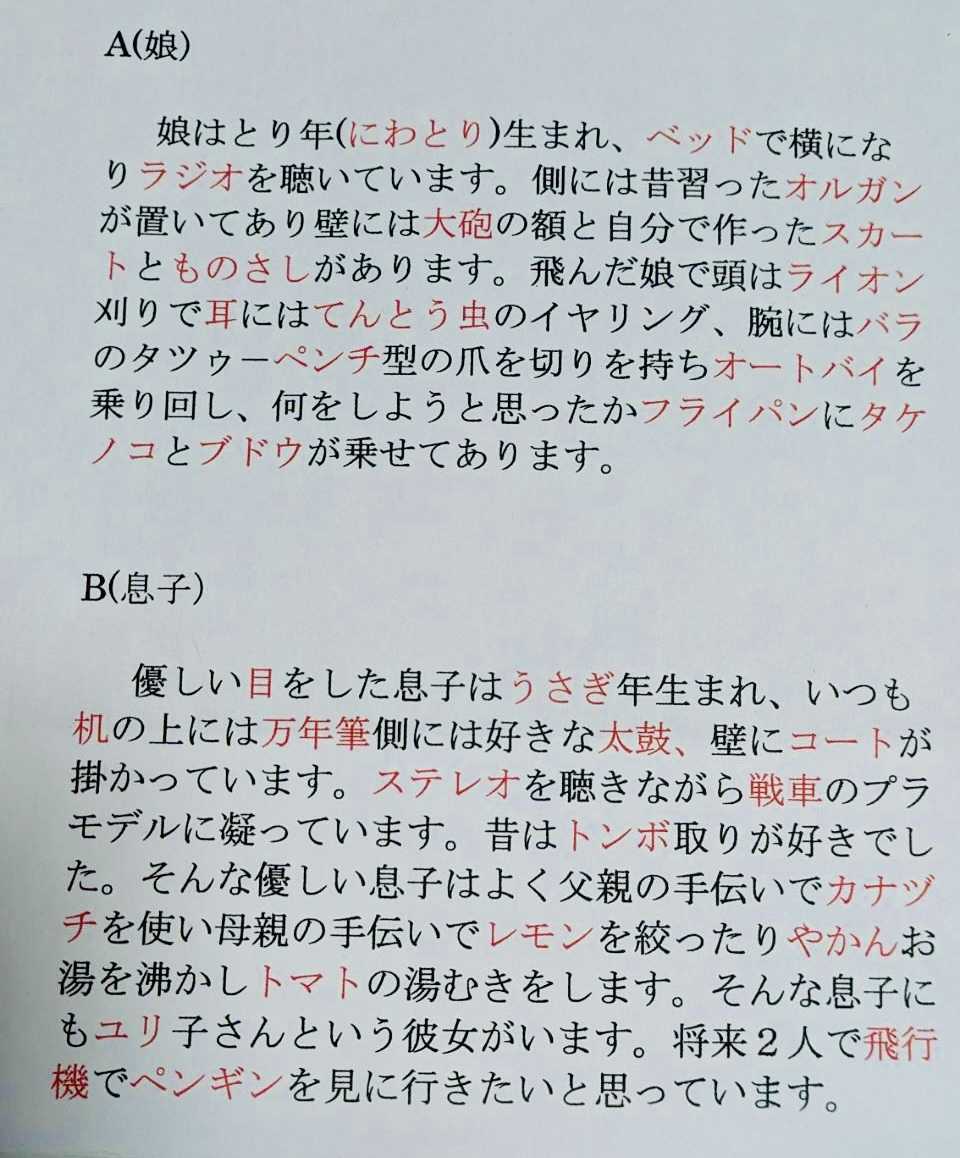 A(娘)
娘はとり年(にわとり)生まれ、ベッドで横にな
りラジオを聴いています。側には昔習ったオルガン
が置いてあり壁には大砲の額と自分で作ったスカー
トとものさしがあります。飛んだ娘で頭はライオン
刈りで耳にはてんとう虫のイヤリング、腕にはバラ
のタツゥーペンチ型の爪を切りを持ちオートバイを
乗り回し、何をしようと思ったかフライパンにタケ
ノコとブドウが乗せてあります。
B(息子)
優しい目をした息子はうさぎ年生まれ、いつも
机の上には万年筆側には好きな太鼓、壁にコートが
掛かっています。ステレオを聴きながら戦車のプラ
モデルに凝っています。昔はトンボ取りが好きでし
た。そんな優しい息子はよく父親の手伝いでカナヅ
チを使い母親の手伝いでレモンを絞ったりやかんお
湯を沸かしトマトの湯むきをします。そんな息子に
もユリ子さんという彼女がいます。将来２人で飛行
機でペンギンを見に行きたいと思っています。